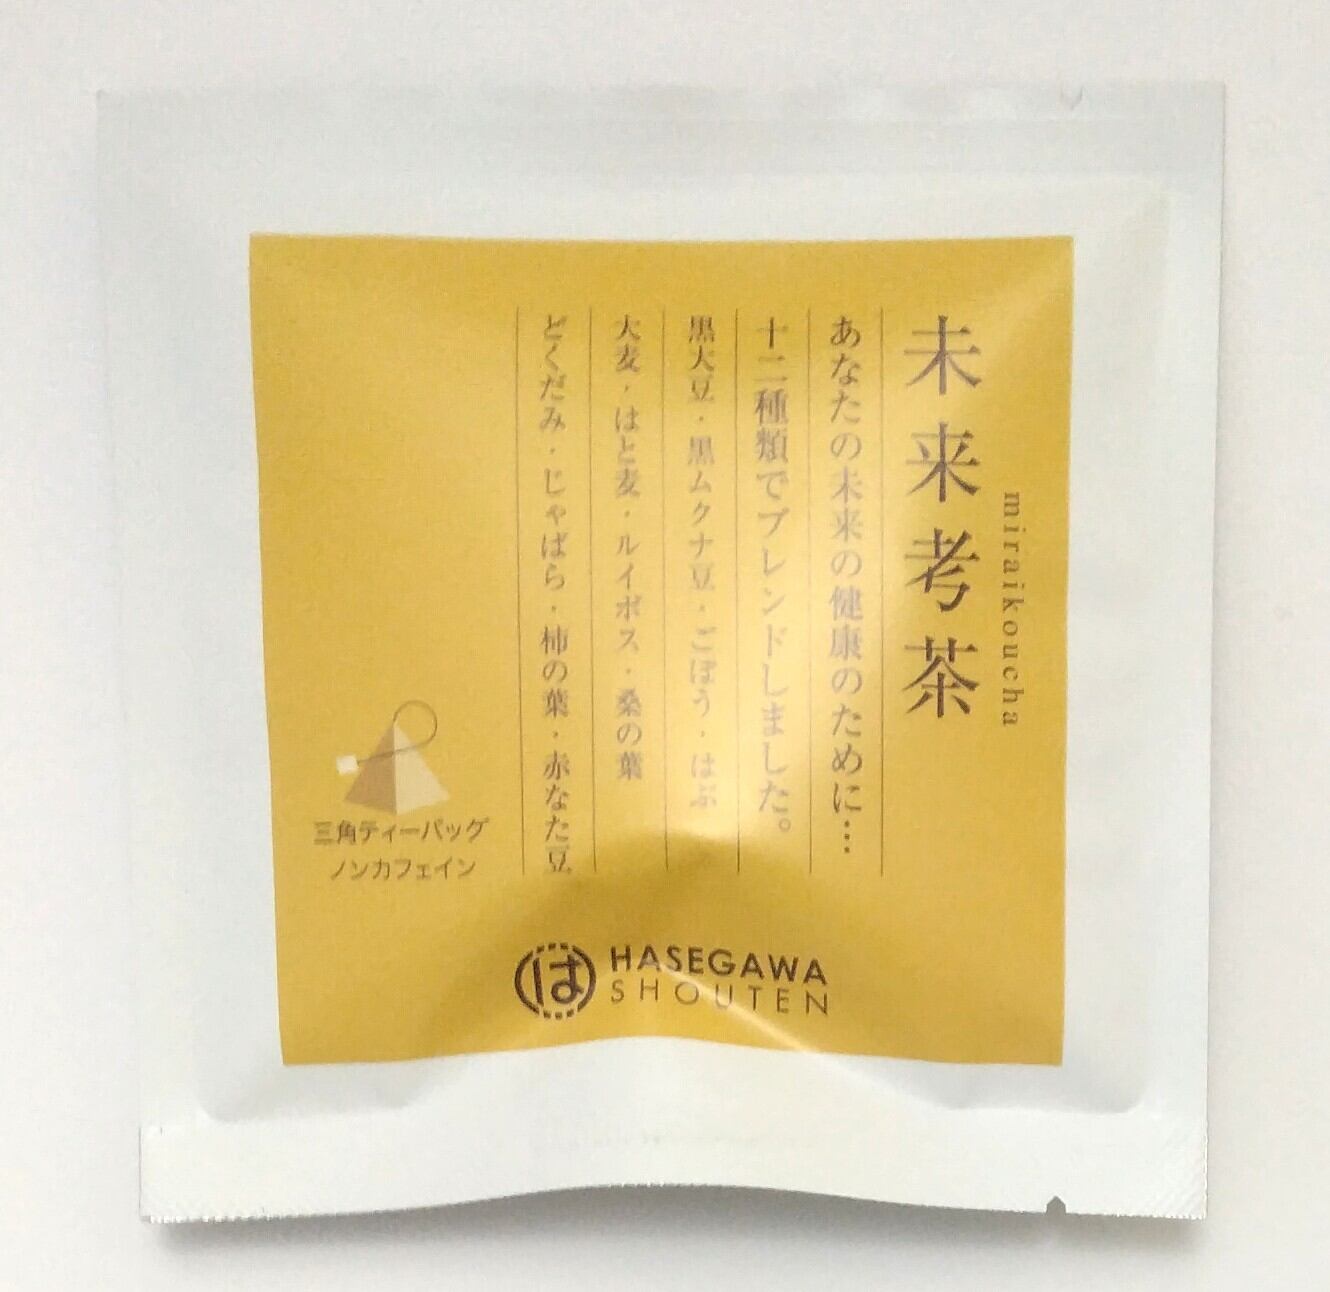 miraikoucha
未来考茶
あなたの未来の健康のために…
十二種類でブレンドしました。
黒大豆・黒ムクナ豆・ごぼう・はぶ
大麦・はと麦・ルイボス・桑の葉
どくだみ・じゃばら・柿の葉・赤なた豆
三角ティーバッグ
ノンカフェイン
は
HASEGAWA
SHOUTEN